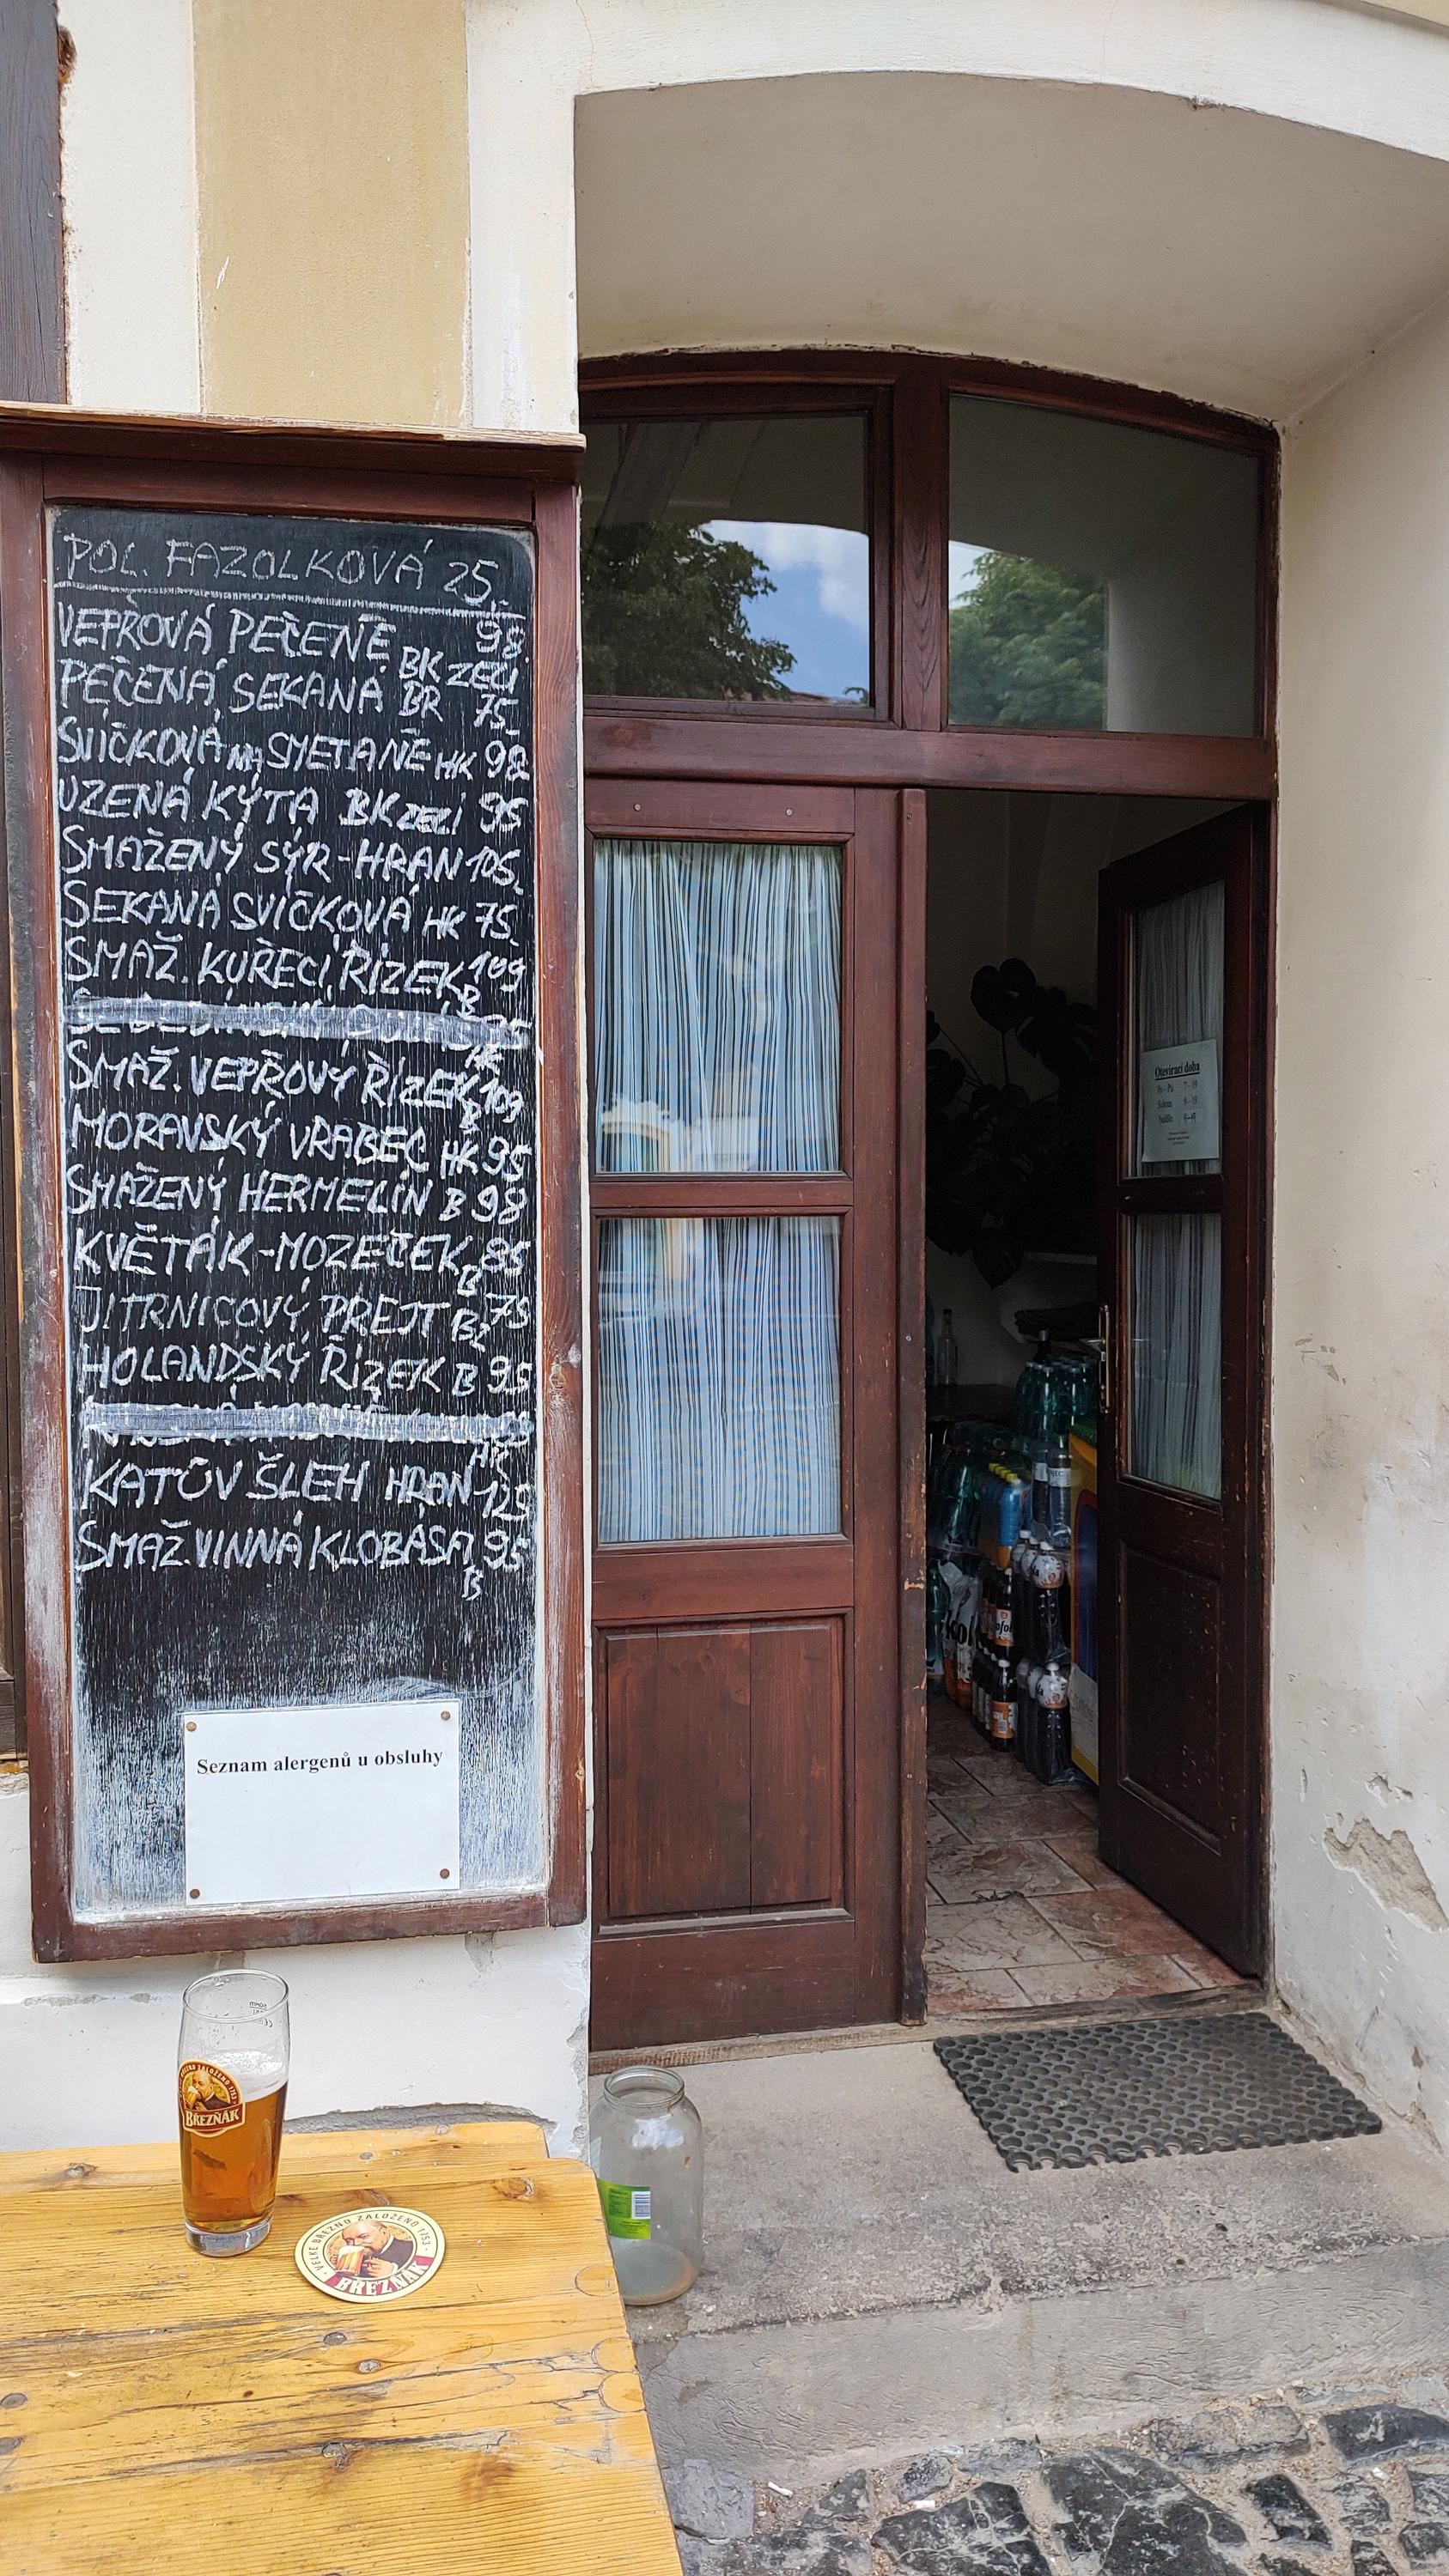 POL. FAZOLKOVÁ 25,-
VEPŘOVÁ PEČENĚ 98.
BK ZELÍ
PEČENÁ SEKANÁ BR 75,-
SVÍČKOVÁ NA SMETANĚ HK 98
UZENÁ KÝTA BK ZELÍ 95
SMAŽENÝ SÝR-HRAN 105,
SEKANÁ SVÍČKOVÁ HK 75,
SMAŽ. KUŘECÍ ŘÍZEK 109
B
HK
SMAŽ. VEPŘOVÝ ŘÍZEK 109
B
MORAVSKÝ VRABEC HK 95
SMAŽENÝ HERMELÍN B 98
KVĚTÁK-MOZEČEK 85
B
JITRNICOVÝ PREJT BZ 75
HOLANDSKÝ ŘÍZEK B 95
HK
KATŮV ŠLEH HRAN 125
SMAŽ. VINNÁ KLOBÁSA 95
B
Seznam alergenů u obsluhy
Otevírací doba
Po - Pá 7 - 19
Sobota
Neděle
ZALOŽENO 1753
BŘEZŇÁK
VELKÉ BŘEZNO ZALOŽENO 1753
BŘEZŇÁK